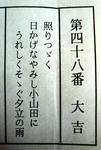 第四十八番 大吉
照りつゞく
日かげなやみし小山田に
うれしくそゝぐ夕立の雨